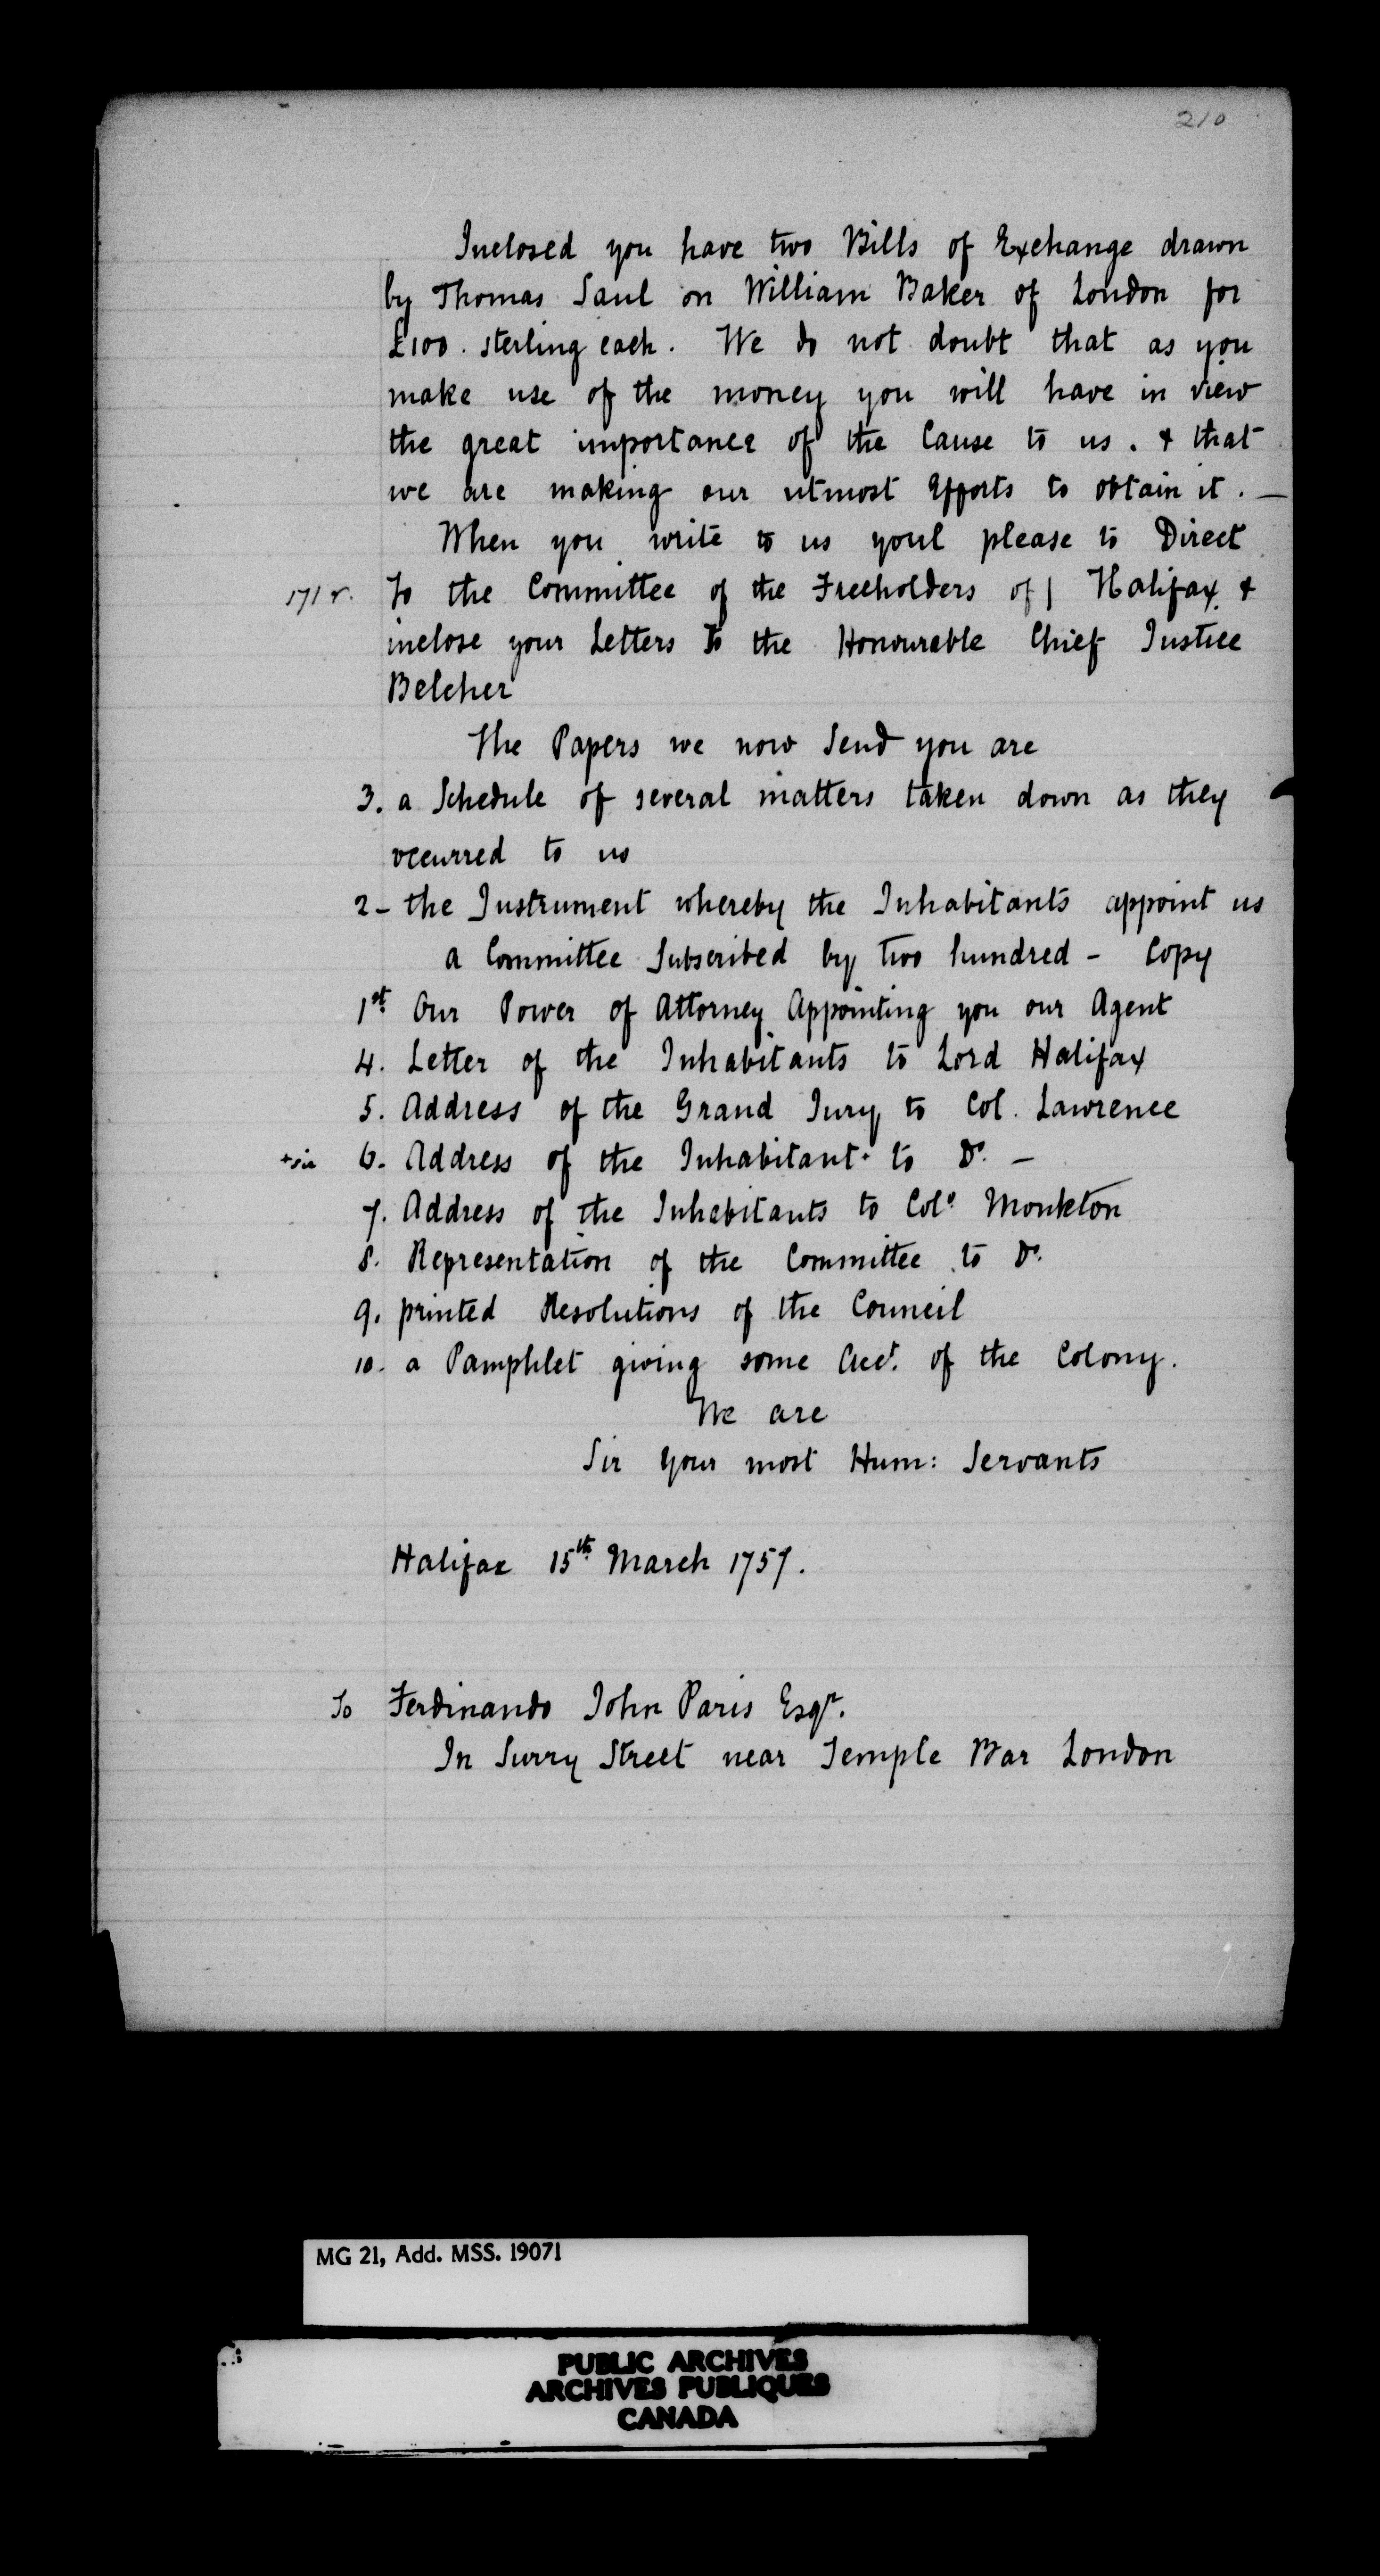 210
Inclosed you have two Bills of Exchange drawn
by Thomas Saul on William Baker of London for
£100. sterling each. We do not doubt that as you
make use of the money you will have in view
the great importance of the Cause to us. & that
we are making our utmost Efforts to obtain it. —
When you write to us youl please to Direct
171 r. To the Committee of the Freeholders of | Halifax &
inclose your Letters To the Honourable Chief Justice
Belcher
The Papers we now Send you are
3. a Schedule of several matters taken down as they
occurred to us
2 - the Instrument whereby the Inhabitants appoint us
a Committee Subscribed by two hundred - Copy
1st Our Power of Attorney Appointing you our Agent
4. Letter of the Inhabitants to Lord Halifax
5. Address of the Grand Jury to Col. Lawrence
+ sic 6. Address of the Inhabitant. to Do. —
7. Address of the Inhabitants to Colo. Monkton
8. Representation of the Committee to Do.
9. printed Resolutions of the Council
10. a Pamphlet giving some Acct. of the Colony.
We are
Sir Your most Hum: Servants
Halifax 15th March 1757.
To Ferdinando John Paris Esqr.
In Surry Street near Temple Bar London
MG 21, Add. MSS. 19071
PUBLIC ARCHIVES
ARCHIVES PUBLIQUES
CANADA